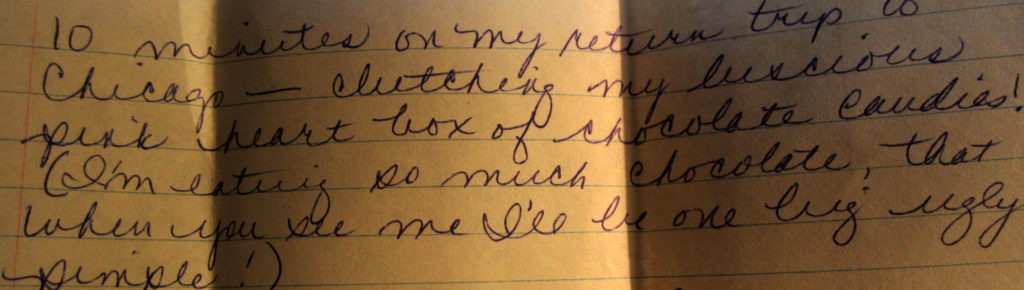 10 minutes on my return trip to
Chicago — clutching my luscious
pink heart box of chocolate candies!
(I'm eating so much chocolate, that
when you see me I'll be one big ugly
pimple!)